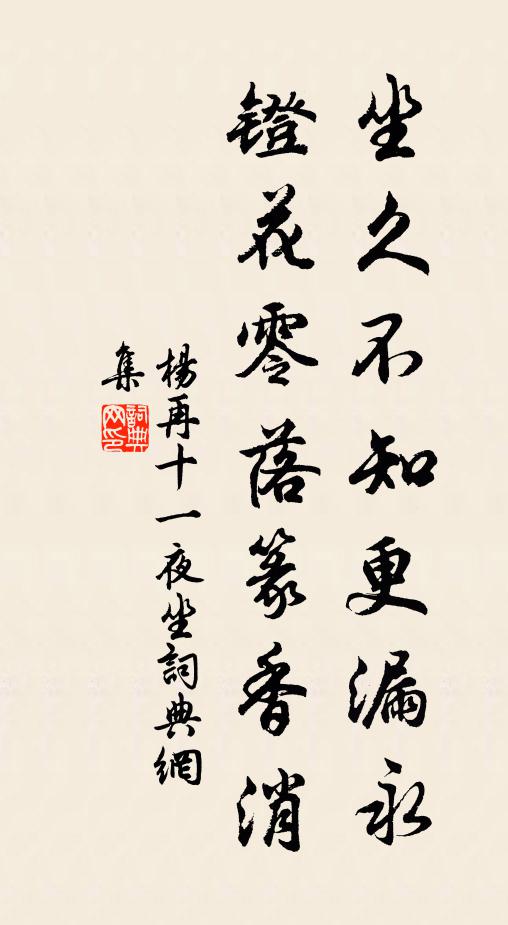 坐久不知更漏永
鐙花零落篆香消
楊再十一夜坐詞典網
集
詞典網印